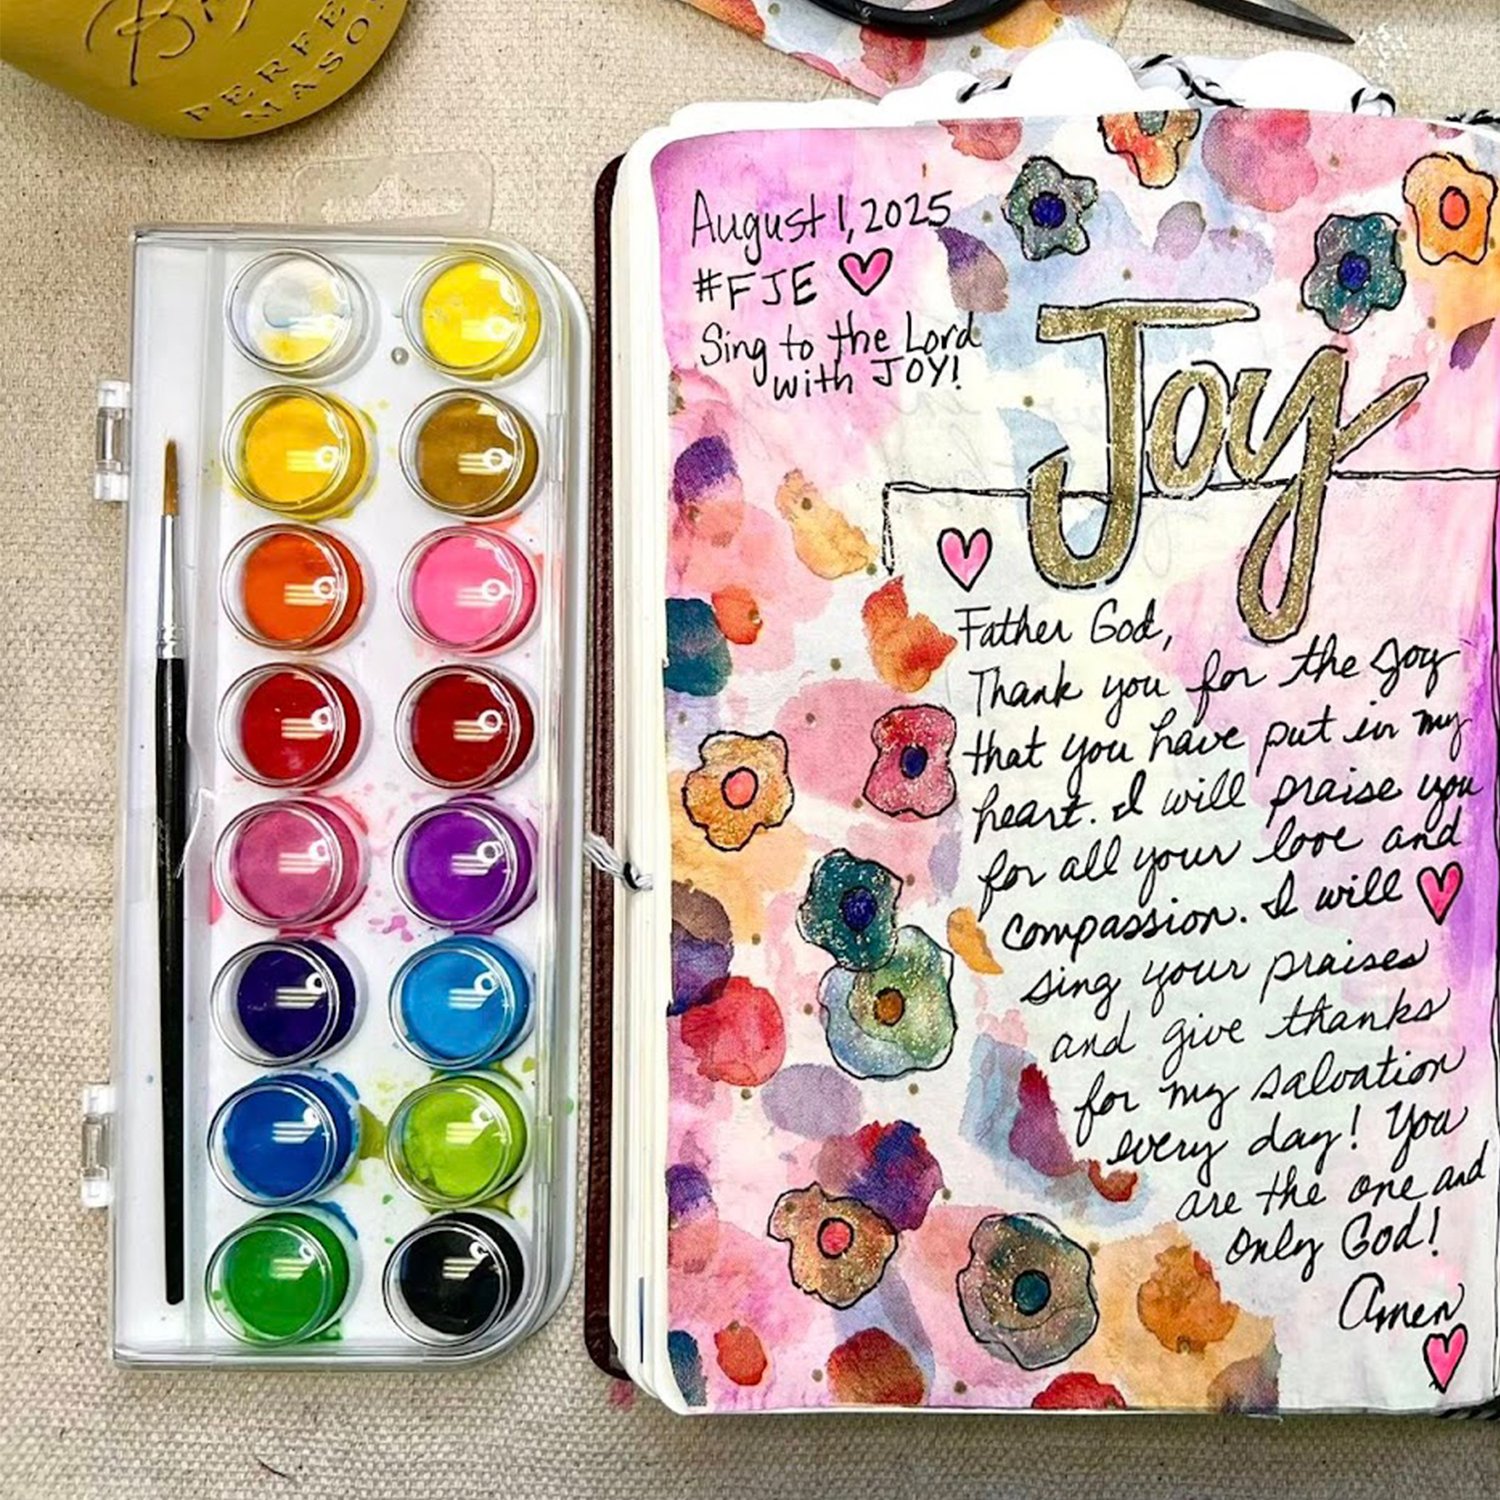 PERFE
MASO
August 1, 2025
#FJE
Sing to the Lord
with JOY!
Joy
Father God,
Thank you for the Joy
that you have put in my
heart. I will praise you
for all your love and
compassion. I will
sing your praises
and give thanks
for my salvation
every day! You
are the one and
only God!
Amen